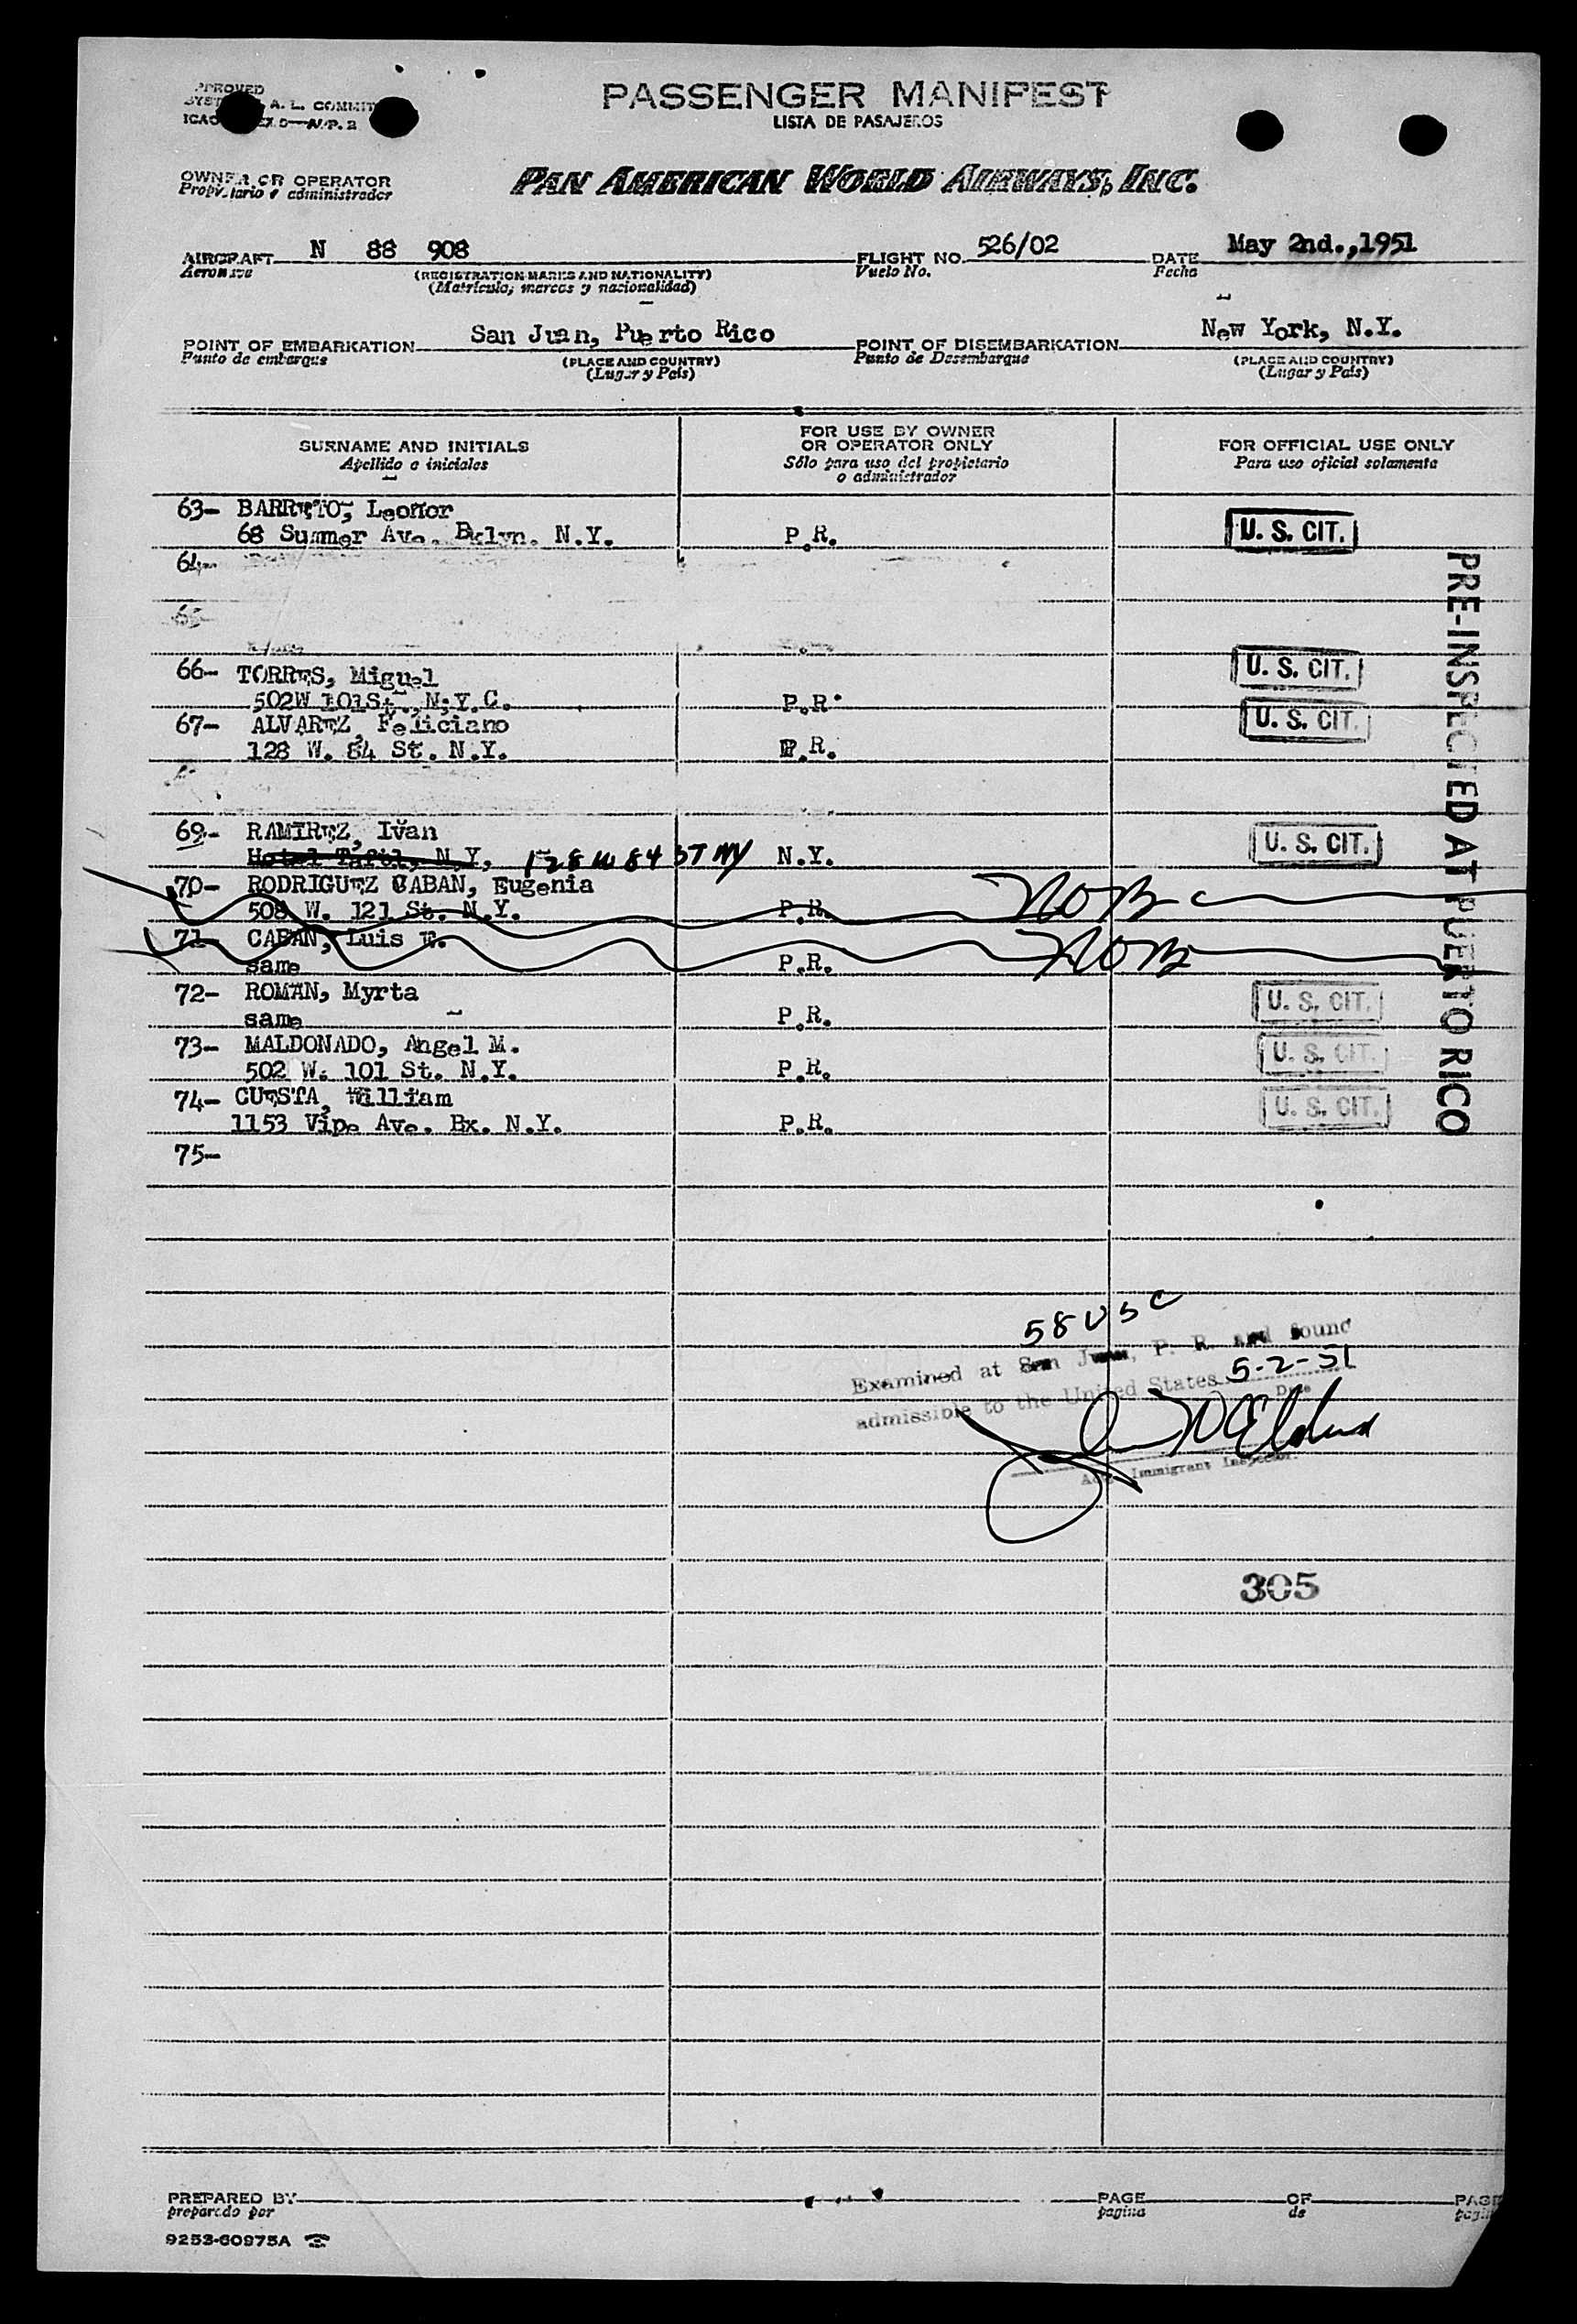 PASSENGER MANIFEST
LISTA DE PASAJEROS
A. L. COMMIT
OWNER OR OPERATOR
Propietario o administrador
PAN AMERICAN WORLD AIRWAYS, INC.
AIRCRAFT N 88 908 FLIGHT NO. 526/02 DATE May 2nd.,1951
Aeronave (REGISTRATION MARKS AND NATIONALITY) Vuelo No. Fecha
(Matrícula, marcas y nacionalidad)
POINT OF EMBARKATION San Juan, Puerto Rico POINT OF DISEMBARKATION New York, N.Y.
Punto de embarque (PLACE AND COUNTRY) Punto de Desembarque (PLACE AND COUNTRY)
(Lugar y País) (Lugar y País)
SURNAME AND INITIALS FOR USE BY OWNER OR OPERATOR ONLY FOR OFFICIAL USE ONLY
Apellido e iniciales Sólo para uso del propietario o administrador Para uso oficial solamente
63- BARRETO, Leonor
68 Sumner Ave. Bklyn. N.Y. P.R. U. S. CIT.
64-
65-
66- TORRES, Miguel U. S. CIT.
502W 101St., N.Y.C. P.R.
67- ALVAREZ, Feliciano U. S. CIT.
128 W. 84 St. N.Y. P.R.
69- RAMIREZ, Ivan
Hotel Taft, N.Y, 128 W 84 ST NY N.Y. U. S. CIT.
70- RODRIGUEZ CABAN, Eugenia
508 W. 121 St. N.Y. P.R. NOB
71- CABAN, Luis E.
same P.R. NOB
72- ROMAN, Myrta
same P.R. U. S. CIT.
73- MALDONADO, Angel M.
502 W. 101 St. N.Y. P.R. U. S. CIT.
74- CUESTA, William
1153 Vipe Ave. Bx. N.Y. P.R. U. S. CIT.
75-
PRE-INSPECTED AT PUERTO RICO
58 USC
Examined at San Juan, P. R. and found
admissible to the United States 5-2-51
Date
Immigrant Inspector.
305
PREPARED BY PAGE OF PAGE
preparado por pagina de
9253-60975A